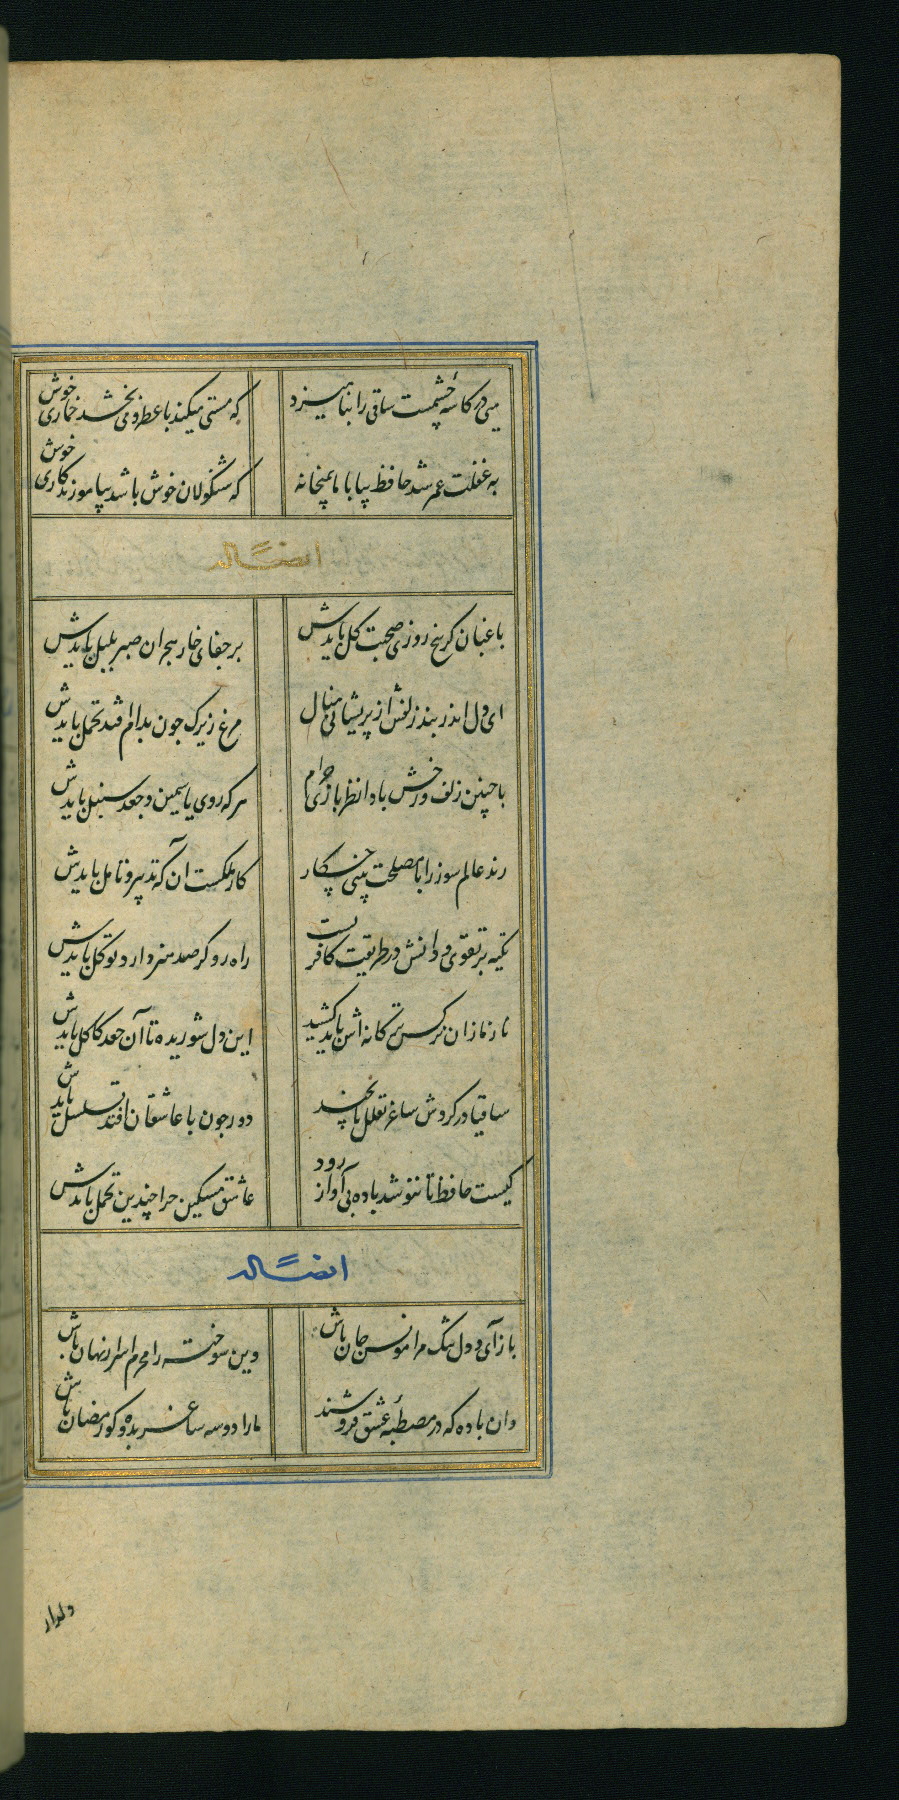 میی در کاسهٔ چشمست ساقی را بنامیزد
که مستی میکند با عقل و می بخشد خماری خوش
به غفلت عمر شد حافظ بیا با ما بمیخانه
که شنگولان خوش باشد بیاموزند کاری خوش
ایضاً له
باغبان کر پنج روزی صحبت کل بایدش
بر جفای خار هجران صبر بلبل بایدش
ای دل اندر بند زلفش از پریشانی منال
مرغ زیرک جون بدام افتد تحمل بایدش
با چنین زلف و رخش بادا نظر بازی حرام
هر که روی یاسمین و جعد سنبل بایدش
رند عالم سوز را با مصلحت بینی چکار
کار ملکست آن که تدبیر و تامل بایدش
تکیه بر تقوی و دانش در طریقت کافریست
راه رو کر صد هنر دارد توکل بایدش
نازنازان نرکس ترکانه اش باید کشید
این دل شوریده تا آن جعد کاکل بایدش
ساقیا در کردش ساغر تعلل تا بچند
دور جون با عاشقان افتد تسلسل بایدش
کیست حافظ تا ننوشد باده بی آواز رود
عاشق مسکین جرا چندین تحمل بایدش
ایضاً له
باز آی و دل تنک مرا مونس جان باش
وین سوخته را محرم اسرار نهان باش
وان باده که در مصطبهٔ عشق فروشند
ما را دو سه ساغر بده و کو رمضان باش
دلدار